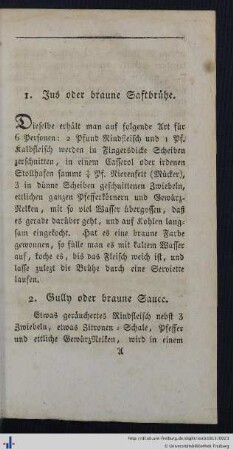 1. Jus oder braune Saftbrühe.
Dieselbe erhält man auf folgende Art für
6 Personen: 2 Pfund Rindfleisch und 1 Pf.
Kalbfleisch werden in Fingersdicke Scheiben
zerschnitten, in einem Casserol oder irdenen
Stollhafen sammt ¼ Pf. Nierenfeit (Mücker),
3 in dünne Scheiben geschnittenen Zwiebeln,
ettlichen ganzen Pfefferkörnern und Gewürz-
Nelken, mit so viel Wasser übergossen, daß
es gerade darüber geht, und auf Kohlen lang-
sam eingekocht. Hat es eine braune Farbe
gewonnen, so fülle man es mit kaltem Wasser
auf, koche es, bis das Fleisch weich ist, und
lasse zulezt die Brühe durch eine Serviette
laufen.
2. Gully oder braune Sauce.
Etwas geräuchertes Rindfleisch nebst 3
Zwiebeln, etwas Zitronen-Schale, Pfeffer
und ettliche GewürzNelken, wird in einem
A
Universitätsbibliothek Freiburg